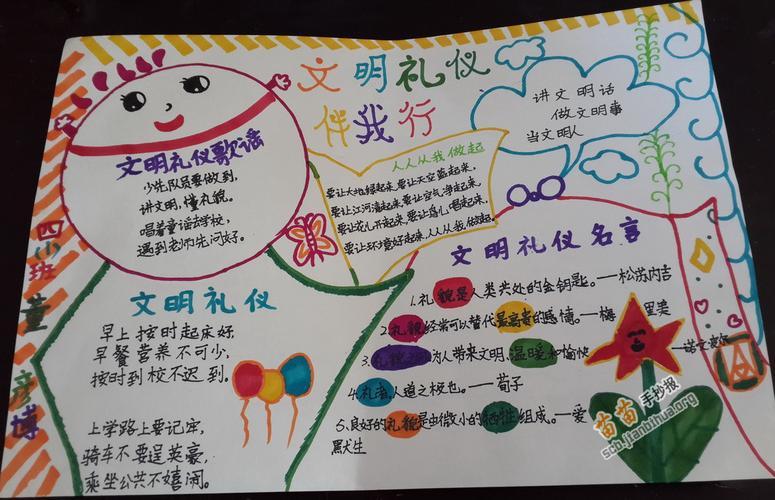 文明礼仪
伴我行
讲文明话
做文明事
当文明人
文明礼仪歌谣
少先队员要做到,
讲文明,懂礼貌。
唱着童谣去学校,
遇到老师先问好。
人人从我做起
要让大地绿起来,要让天空蓝起来,
要让江河清起来,要让空气净起来,
要让花儿开起来,要让鸟儿唱起来,
要让环境好起来,人人从我做起。
四(1)班
董彦博
文明礼仪
早上按时起床好,
早餐营养不可少,
按时到校不迟到。
上学路上要记牢,
骑车不要逞英豪,
乘坐公共不嬉闹。
文明礼仪名言
1.礼貌是人类共处的金钥匙。——松苏内吉
2.礼貌经常可以替代最高贵的感情。——梅里美
3.礼貌 为人带来文明、温暖和愉快——诺文
4.礼者,人道之极也。——荀子
5、良好的礼貌是由微小的牺牲组成。——爱
默生
苗苗手抄报
scb.jianbihua.org